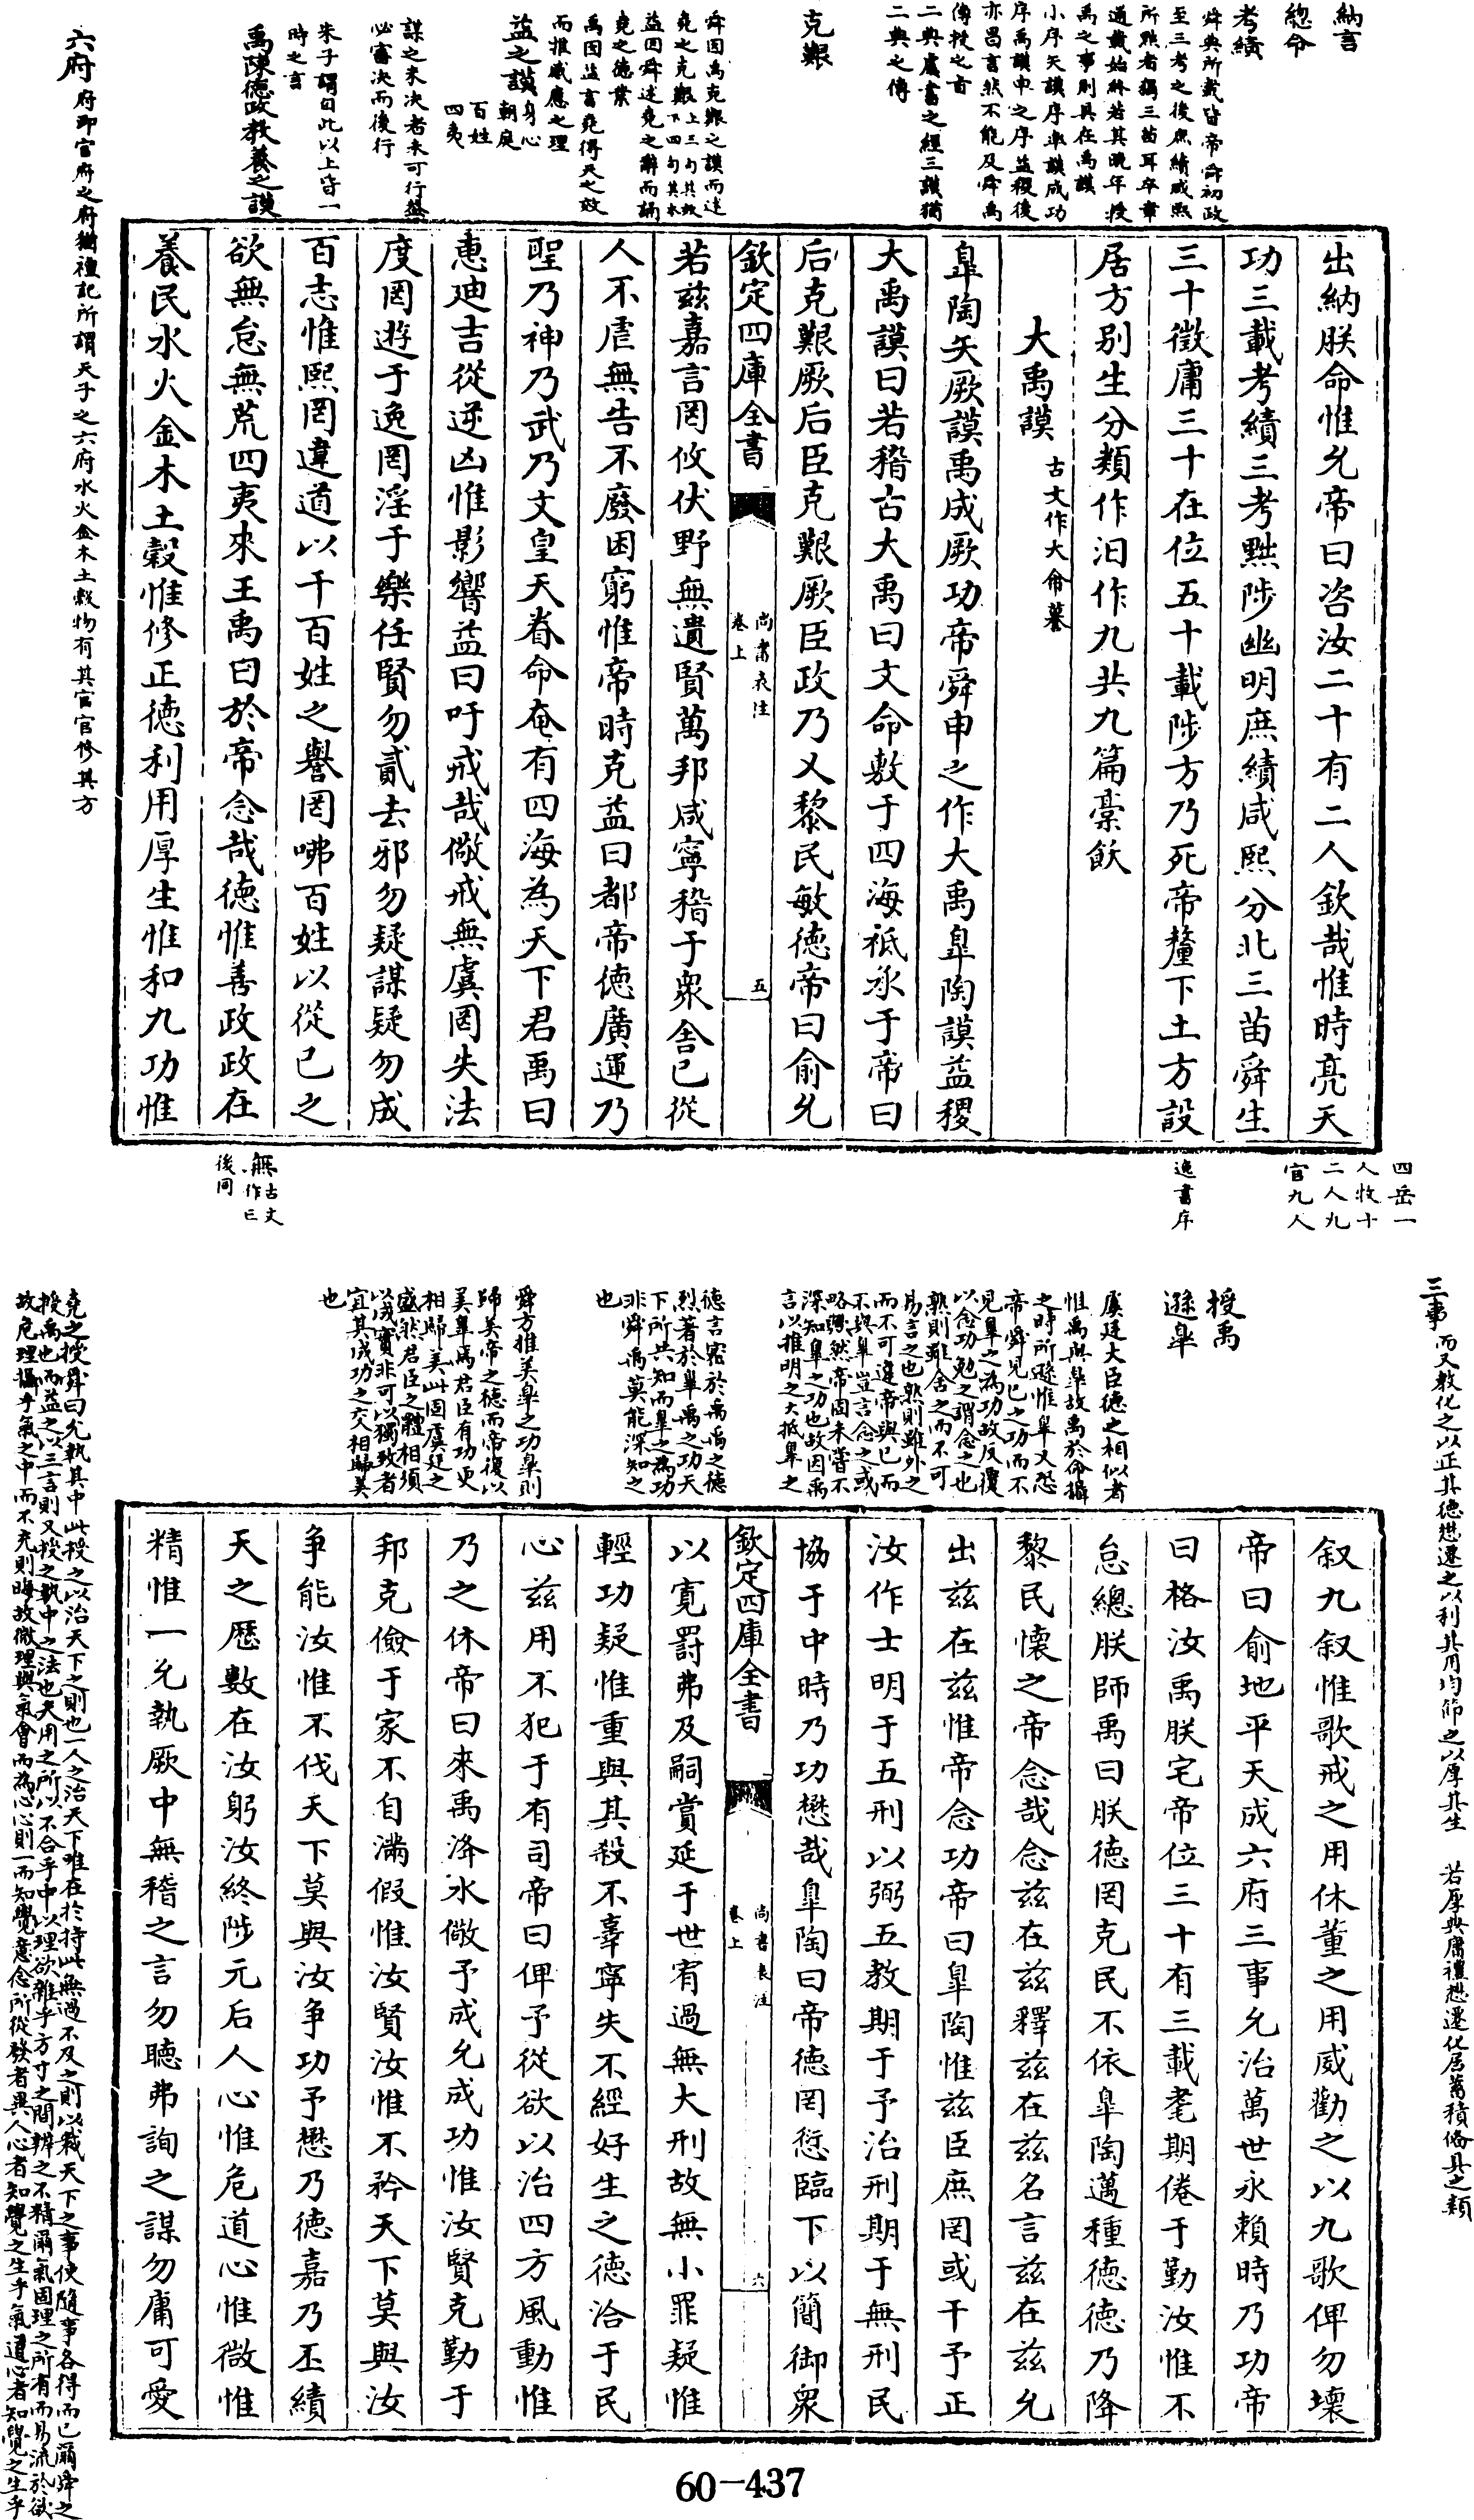 納言
總命
考績
舜典所載皆帝舜初政
至三考之後庶績咸熙
所黜者獨三苗耳卒章
通載始終若其晚年授
禹之事則具在禹謨
小序矢謨序皋謨成功
序禹謨申之序益稷後
亦昌言然不能及舜禹
傳授之言
二典虞書之經三謨猶
二典之傳
克艱
舜因禹克艱之謨而述
堯之克艱上三句其效下四句其本
益因舜述堯之辭而誦
堯之德業
禹因益言堯得天之效
而推感應之理
益之謨
身心
朝庭
百姓
四夷
謀之未決者未可行盖
必審决而後行
朱子謂自此以上皆一
時之言
禹陳德政教養之謨
六府 府即官府之府猶禮記所謂天子之六府水火金木土穀物有其官官修其方
出納朕命惟允帝曰咨汝二十有二人欽哉惟時亮天
功三載考績三考黜陟幽明庶績咸熙分北三苗舜生
三十徵庸三十在位五十載陟方乃死帝釐下土方設
居方别生分類作汩作九共九篇稾飫
大禹謨 古文作大
皐陶矢厥謨禹成厥功帝舜申之作大禹皐陶謨益稷
大禹謨曰若稽古大禹曰文命敷于四海祗承于帝曰
后克艱厥后臣克艱厥臣政乃乂黎民敏德帝曰俞允
欽定四庫全書
尚書表注
卷上
五
若兹嘉言罔攸伏野無遺賢萬邦咸寧稽于衆舍已從
人不虐無告不廢困窮惟帝時克益曰都帝德廣運乃
聖乃神乃武乃文皇天眷命奄有四海為天下君禹曰
惠廸吉從逆凶惟影響益曰吁戒哉儆戒無虞罔失法
度罔遊于逸罔淫于樂任賢勿貳去邪勿疑謀疑勿成
百志惟熙罔違道以干百姓之譽罔咈百姓以從已之
欲無怠無荒四夷來王禹曰於帝念哉德惟善政政在
養民水火金木土穀惟修正德利用厚生惟和九功惟
四岳一
人牧十
二人九
官九人
逸書序
無古文
作亡
後同
三事 而又教化之以正其德懋遷之以利其用均節之以厚其生 若厚典庸禮懋遷化居蓄積偹具之類
授禹
遜皋
虞廷大臣德之相似者
惟禹與皋故禹於命攝
之時所遜惟皋又恐
帝舜見已之功而不
見皋之為功故反覆
以念功勉之謂念之也
熟則雖舍之而不可
易言之也熟則雖外之
而不可違帝與已而
不與皋豈言念之或
略與然帝固未嘗不
深知皋之功也故因禹
言以推明之大抵皋之
德言宻於禹禹之德
烈著於皋禹之功天
下所共知而皋之為功
非舜禹莫能深知之
也
舜方推美皋之功皋則
歸美帝之德而帝復以
美皋焉君臣有功更
相歸美此固虞廷之
盛然君臣之體相須
以成實非可以獨致者
宜其成功之交相歸美
也
堯之授舜曰允執其中此授之以治天下之則也一人之治天下唯在於持此無過不及之則以裁天下之事使隨事各得而已爾舜之
授禹也而益之以三言則又授之執中之法也夫用之所以不合乎中以理欲雜乎方寸之間辨之不精爾氣固理之所有而易流於欲
故危理攝乎氣之中而不充則晦故微理與氣會而為心心則一而知覺意念所從發者異人心者知覺之生乎氣道心者知覺之生乎
叙九叙惟歌戒之用休董之用威勸之以九歌俾勿壞
帝曰俞地平天成六府三事允治萬世永賴時乃功帝
曰格汝禹朕宅帝位三十有三載耄期倦于勤汝惟不
怠總朕師禹曰朕德罔克民不依皐陶邁種德德乃降
黎民懷之帝念哉念兹在兹釋兹在兹名言兹在兹允
出兹在兹惟帝念功帝曰皐陶惟兹臣庶罔或干予正
汝作士明于五刑以弼五教期于予治刑期于無刑民
協于中時乃功懋哉皐陶曰帝德罔愆臨下以簡御衆
欽定四庫全書
尚書表注
卷上
六
以寛罰弗及嗣賞延于世宥過無大刑故無小罪疑惟
輕功疑惟重與其殺不辜寧失不經好生之德洽于民
心兹用不犯于有司帝曰俾予從欲以治四方風動惟
乃之休帝曰來禹洚水儆予成允成功惟汝賢克勤于
邦克儉于家不自滿假惟汝賢汝惟不矜天下莫與汝
争能汝惟不伐天下莫與汝争功予懋乃德嘉乃丕績
天之歷數在汝躬汝終陟元后人心惟危道心惟微惟
精惟一允執厥中無稽之言勿聽弗詢之謀勿庸可愛
60-437